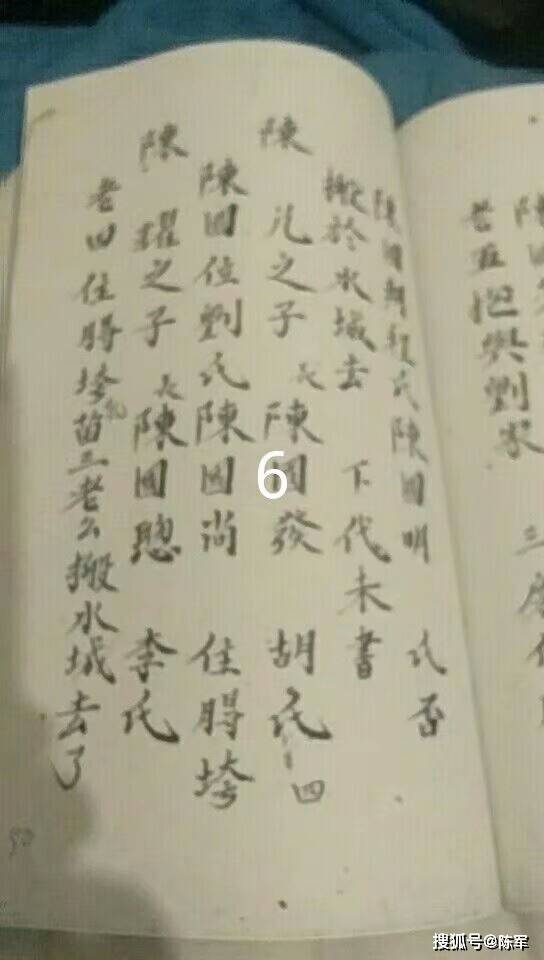 陳國朝程氏陳國明 氏否
搬於水城去 下代未書
陳 凡之子 長陳國發 胡氏 四
陳國位劉氏陳國尚 住勝垮
陳 耀之子 長陳國聰 李氏
老四住勝垮 苗三老公搬水城去了
老五 與劉家
三房
6
搜狐号@陈军